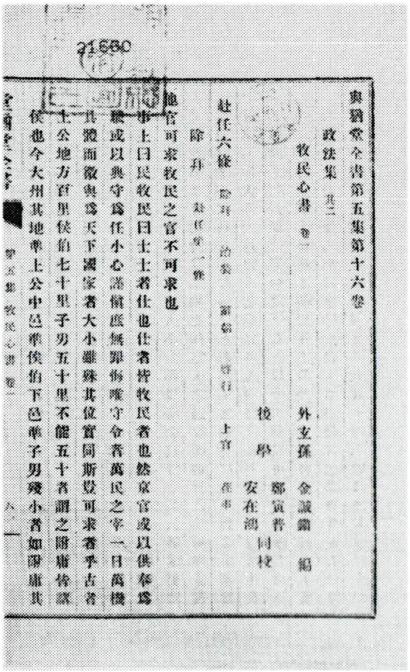 21660
與猶堂全書第五集第十六卷
政法集 其二
牧民心書 卷一
外玄孫 金誠鎭 編
後學 鄭寅普 安在鴻 同校
赴任六條 除拜 治裝 辭朝 啓行 上官 莅事
除拜 赴任第一條
他官可求牧民之官不可求也
事上曰民牧民曰士士者仕也仕者皆牧民者也然京官或以供奉爲
職或以典守爲任小心謹愼庶無罪悔唯守令者萬民之宰一日萬機
具體而微與爲天下國家者大小雖殊其位實同斯豈可求者乎古者
上公地方百里侯伯七十里子男五十里不能五十者謂之附庸皆諸
侯也今大州其地準上公中邑準侯伯下邑準子男殘小者如附庸其
與猶堂全書
第五集 牧民心書 卷一